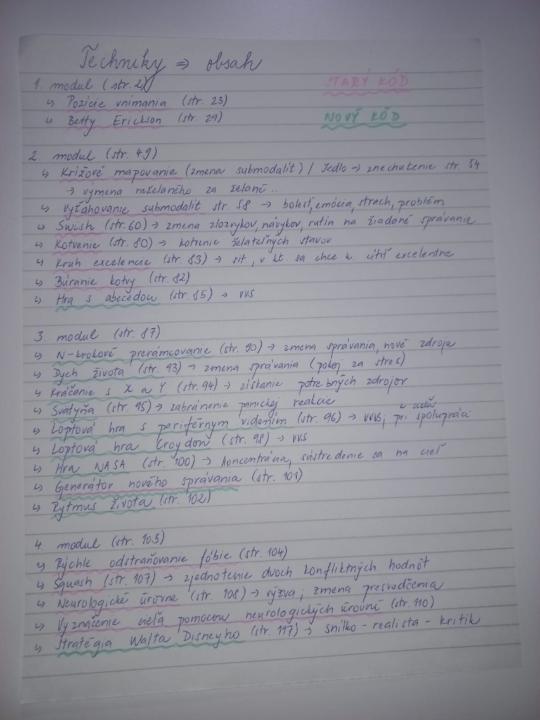 Techniky ⇒ obsah
1. modul (str. 2)
STARÝ KÓD
↳ Pozície vnímania (str. 23)
↳ Betty Erickson (str. 29)
NOVÝ KÓD
2. modul (str. 49)
↳ Krížové mapovanie (zmena submodalít) / Jedlo → znechutenie str. 54
→ výmena neželaného za želané..
↳ Vyťahovanie submodalít str. 58 → bolesť, emócia, strach, problém
↳ Swish (str. 60) → zmena zlozvykov, návykov, rutín na žiadané správanie
↳ Kotvenie (str. 80) → kotvenie želateľných stavov
↳ Kruh excelencie (str. 83) → sit., v kt. sa chce k. cítiť excelentne
↳ Búranie kotvy (str. 82)
↳ Hra s abecedou (str. 85) → VVS
3. modul (str. 87)
↳ N-krokové prerámcovanie (str. 90) → zmena správania, nové zdroje
↳ Dych života (str. 93) → zmena správania (pokoj za stres)
↳ Kráčanie s X a Y (str. 94) → získanie potrebných zdrojov
↳ Svätyňa (str. 95) → zabránenie panickej reakcie
↳ Loptová hra s periférnym videním (str. 96) → VVVS, pri spolupráci
↳ Loptová hra Croydon (str. 98) → VVS
↳ Hra NASA (str. 100) → koncentrácia, sústredenie sa na cieľ
↳ Generátor nového správania (str. 101)
↳ Rytmus života (str. 102)
4. modul (str. 103)
↳ Rýchle odstraňovanie fóbie (str. 104)
↳ Squash (str. 107) → zjednotenie dvoch konfliktných hodnôt
↳ Neurologické úrovne (str. 108) → výzva, zmena presvedčenia
↳ Vyznačenie cieľa pomocou neurologických úrovní (str. 110)
↳ Stratégia Walta Disneyho (str. 117) → snílko - realista - kritik